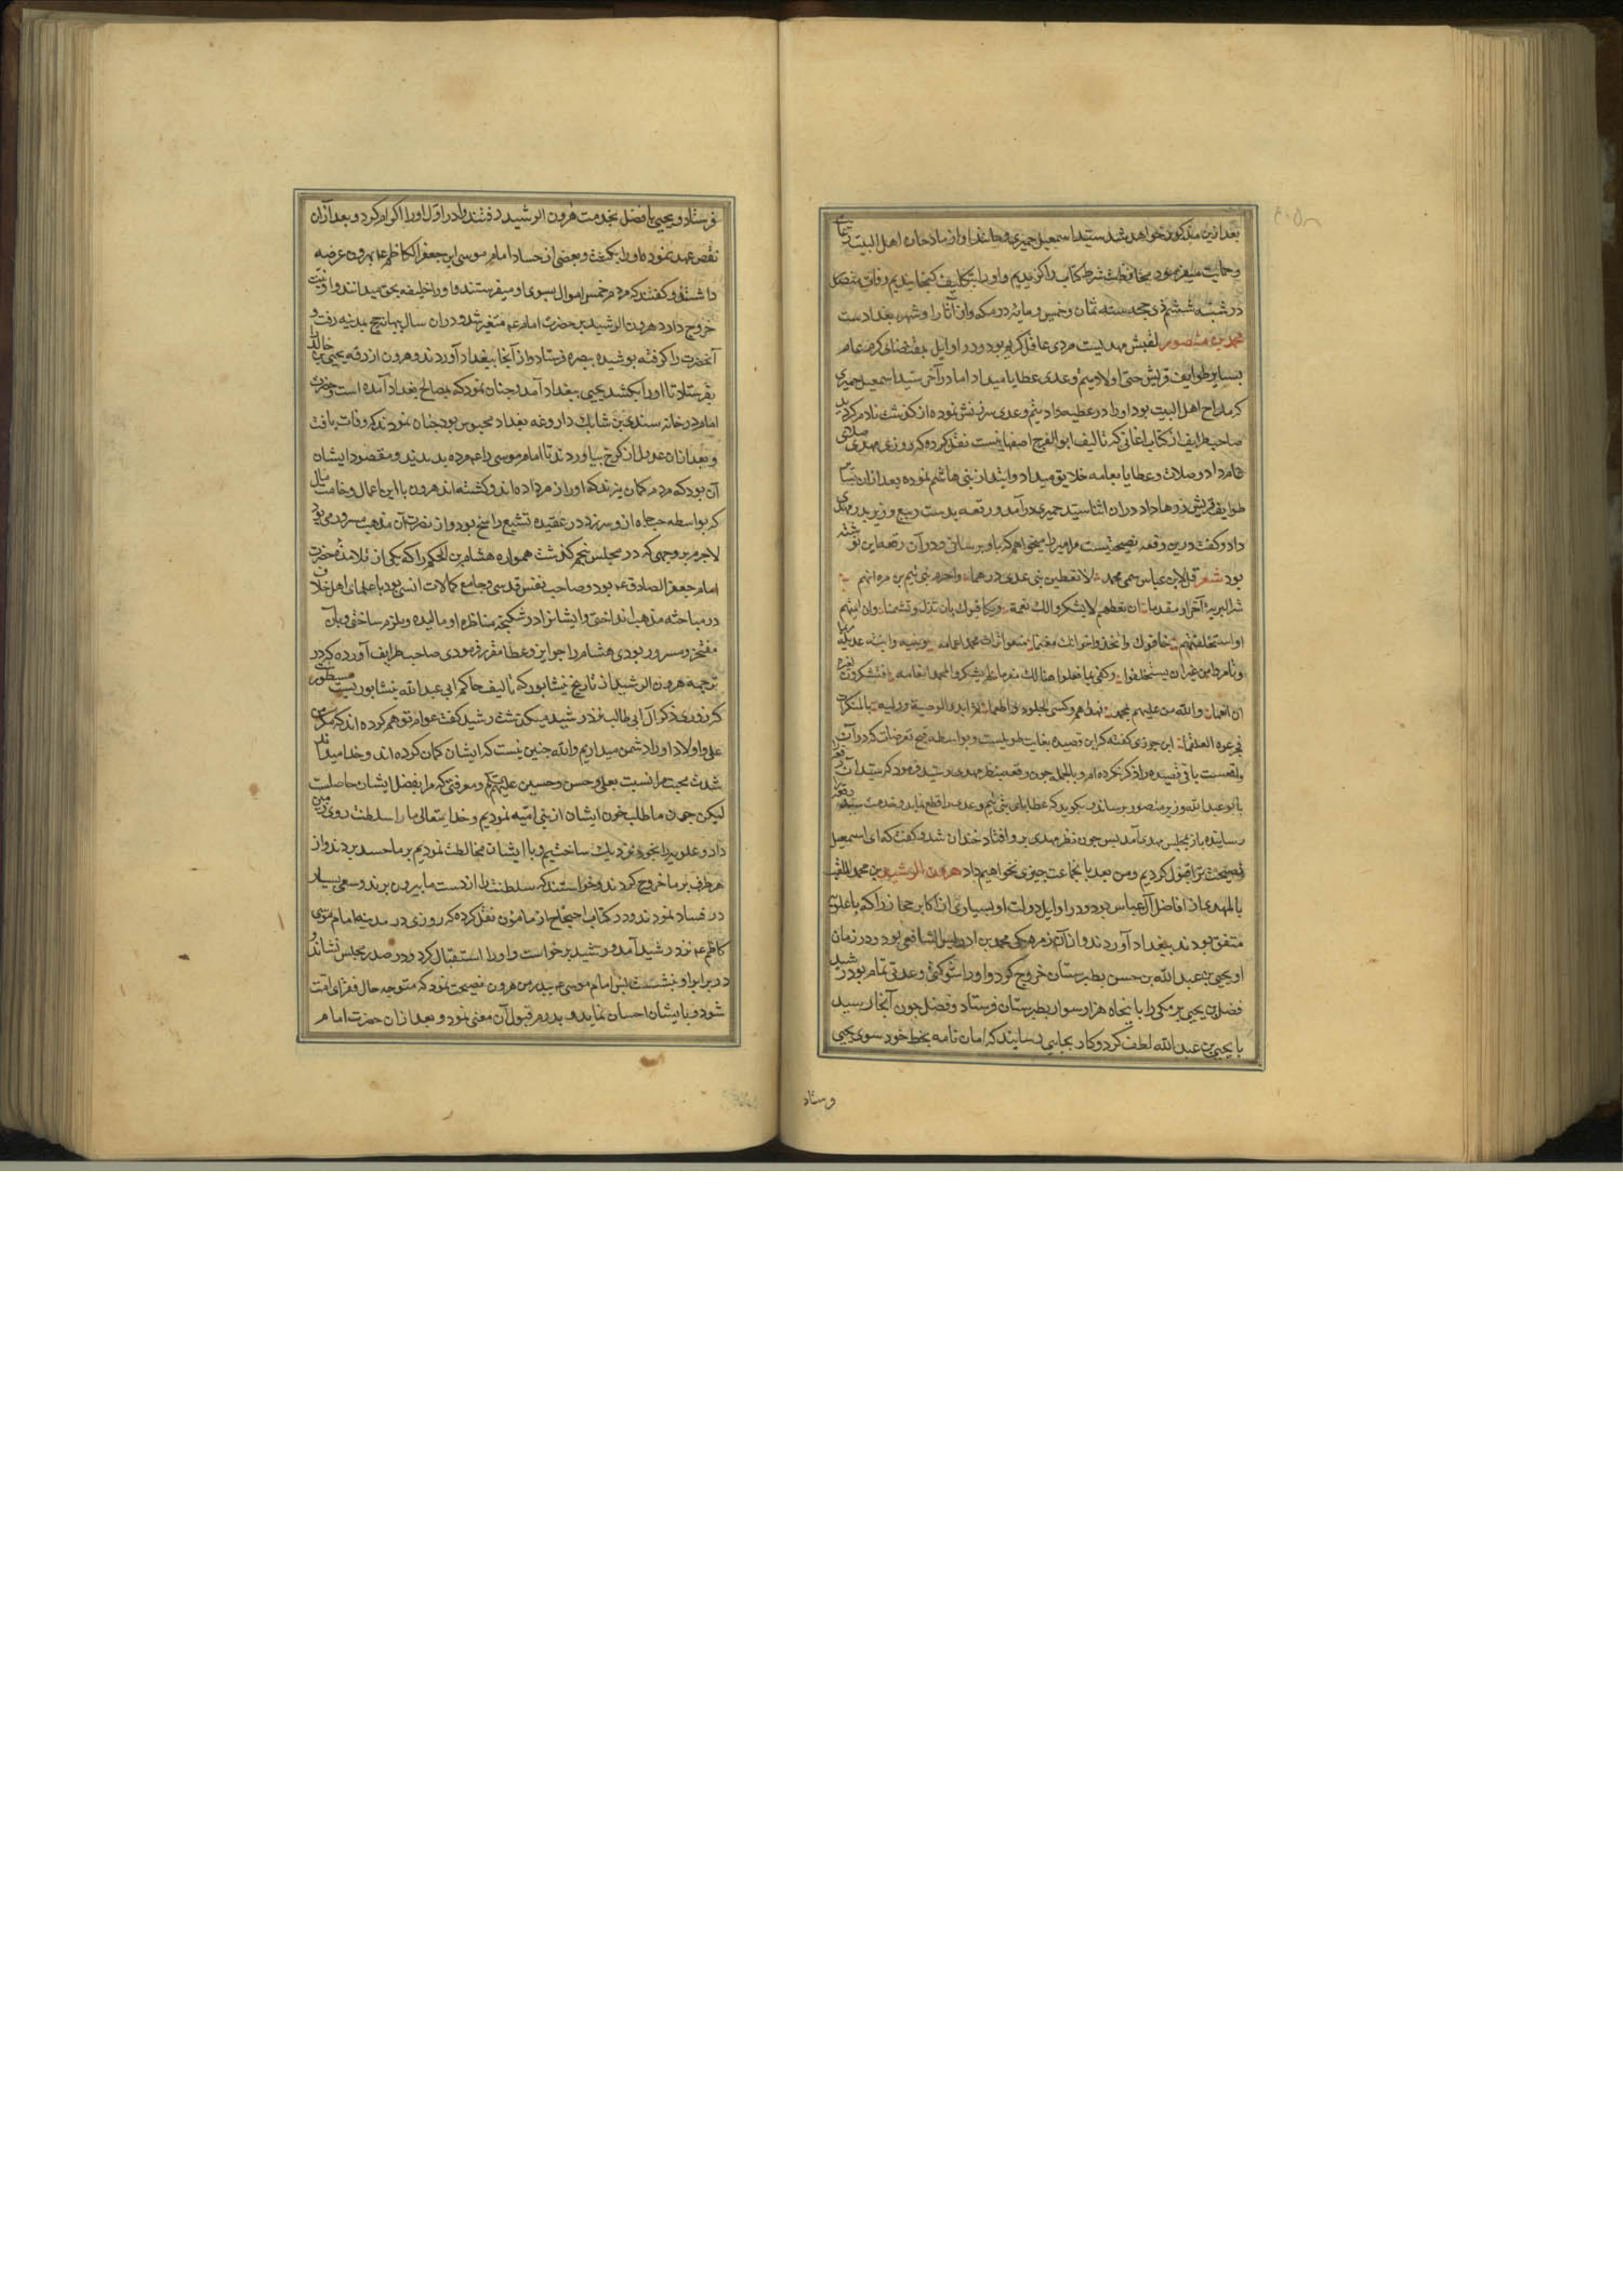 بعد ازین مذکور خواهد شد سید اسمعیل حمیری و جانداد او از مادحان اهل البیت
و حمایت میفرمود بمحافظت شرط کتاب را کزیدیم و او را بتکلیف
در شنبه ششم ذی حجه سنه ثمان و خمسین و مایه در مکه و از آثار او شهر بغدادست
محمد بن منصور لقبش مهدیست مردی عاقل کریم بود و در اوایل بمقتضای کرم عام
بسایر طوایف قریش حتی اولاد تیم و عدی عطایا میداد اما در آخر سید اسمعیل حمیری
که مداح اهل البیت بود او را در عطیه دادن تیم و عدی سرزنش نموده از کذشت نادم کردید
صاحب طرایف از کتاب اغانی که تالیف ابو الفرج اصفهانیست نقل کرده که روزی مهدی صلاتی
عام داد و صلات و عطایا بعامه خلایق میداد و ابتدا از بنی هاشم نموده بعد ازان بسایر
طوایف قریش زرها داد دران اثنا سید حمیری درآمد و رقعه بدست ربیع وزیر پدر مهدی
داد و کفت درین رقعه نصیحتیست مر امیر را میخواهم که باو برسانی و در آن رقعه این نوشته
بود شعر قل لابن عباس سمی محمد لا تعطین بنی عدی درهما واحرم بنی تیم بن مره انهم
شر البریة آخرا و مقدما ان تعطهم لا یشکروا لک نعمة و یکافئوک بان تذم و تشتما و ان ائتمنتهم
او استعملتهم خانوک و اتخذوا خراجک مغنما منعوا تراث محمد اعمامه و بنیه و ابنته عدیلة مریما
و تامروا من غیر ان یستخلفوا و کفی بما فعلوا هنالک مغرما لم یشکروا لمحمد انعامه افیشکرون لغیره
ان انعما و الله من علیهم بمحمد و هداهم و کسی الجلود و اطعما ثم انبروا لوصیه و ولیه بالمنکرات
فجرعوه العلقما ابن جوزی کفته که این قصیده بغایت طویلست و بواسطه قبح تعرضات که در آن
واقعست باقی قصیده را ذکر نکرده ام و بالجمله چون رقعه بنظر مهدی رسید فرمود که سید آن رقعه را
بابو عبد الله وزیر منصور برساند و بکوید که عطایای بنی تیم و عدی را قطع نماید و خدمت سید رقعه
رسانیده باز بمجلس مهدی آمد پس چون نظر مهدی برو افتاد خندان شد و کفت که ای اسمعیل
نصیحت ترا قبول کردیم و من بعد بانجماعت چیزی نخواهیم داد هرون الرشید بن محمد الملقب
بالمهدی از افاضل آل عباس بود و در اوایل دولت او بسیاری از اکابر حجاز را که با علویه
متفق بودند ببغداد آوردند و از آن زمره یکی محمد بن ادریس الشافعی بود و در زمان
او یحیی بن عبد الله بن حسن بطبرستان خروج کرد و او را شوکتی و عدتی تمام بود رشید
فضل بن یحیی برمکی را با پنجاه هزار سوار بطبرستان فرستاد و فضل چون آنجا رسید
با یحیی بن عبد الله لطف کرد و کار بجایی رسانید که امان نامه بخط خود سوی یحیی
فرستاد
فرستاد و یحیی با فضل بخدمت هرون الرشید رفتند و او در اول او را اکرام کرد و بعد از آن
نقض عهد نمود و او را بکشت و بعضی از حساد امام موسی ابن جعفر الکاظم ع م بهرون عرضه
داشتند و کفتند که مردم خمس اموال بسوی او میفرستند و او را خلیفه بحق میدانند و او نیت
خروج دارد هرون الرشید بر حضرت امام ع م متغیر شد و در ان سال ببهانه حج بمدینه رفت و
آنحضرت را کرفته پوشیده ببصره فرستاد و از آنجا ببغداد آوردند و هرون از رقه یحیی بن خالد
بفرستاد تا او را بکشد یحیی ببغداد آمد و چنان نمود که بمصالح بغداد آمده است و حضرت
امام در خانه سندی بن شاهک داروغه بغداد محبوس بود چنان نمودند که وفات یافت
و بعد ازان عدول از کرخ بیاوردند تا امام موسی را ع م مرده بدیدند و مقصود ایشان
آن بود که مردم کمان نبرند که او را زهر داده اند و کشته اند هرون با این اعمال وخامت مآل
که بواسطه حب جاه ازو سر زد در عقیده تشیع راسخ بود و از نصرت آن مذهب مسرور می بود
لاجرم بر وجهی که در مجلس پنجم کذشت همواره هشام بن الحکم را که یکی از تلامذه حضرت
امام جعفر الصادق ع م بود و صاحب نفس قدسی و جامع کمالات انسی بود با علمای اهل خلاف
در مباحثه مذهب انداختی و ایشانرا در شکنجه مناظره او مالیده و ملزم ساختی و بآن
مفتخر و مسرور بودی هشام را جوایز و عطا مقرر فرمودی صاحب طرایف آورده که در
ترجمه هرون الرشید از تاریخ نیشابور که تالیف حاکم ابی عبد الله نیشابوریست مسطورست
که روزی ذکر آل ابی طالب نزد رشید میکذشت رشید کفت عوام توهم کرده اند که ما
علی و اولاد او را دشمن میداریم و الله چنین نیست که ایشان کمان کرده اند و خدا میداند
شدت محبت مرا نسبت بعلی و حسن و حسین علیهم السلام و معرفتی که مرا بفضل ایشان حاصلست
لیکن چون ما طلب خون ایشان از بنی امیه نمودیم و خدایتعالی ما را سلطنت روی زمین
داد و علویه را بخود نزدیک ساختیم و با ایشان مخالطت نمودیم بر ما حسد بردند و از
هر طرف بر ما خروج کردند و خواستند که سلطنت را از دست ما بیرون برند و سعی بسیار
در فساد نمودند و در کتاب احتجاج از مامون نقل کرده که روزی در مدینه امام موسی
کاظم ع م نزد رشید آمد و رشید برخواست و او را استقبال کرد و در صدر مجلس نشاند و
در برابر او بنشست پس امام موسی ع م پدر من هرون نصیحت نمود که متوجه حال فقرای امت
شود و با ایشان احسان نماید و پدرم قبول آن معنی نمود و بعد ازان حضرت امام